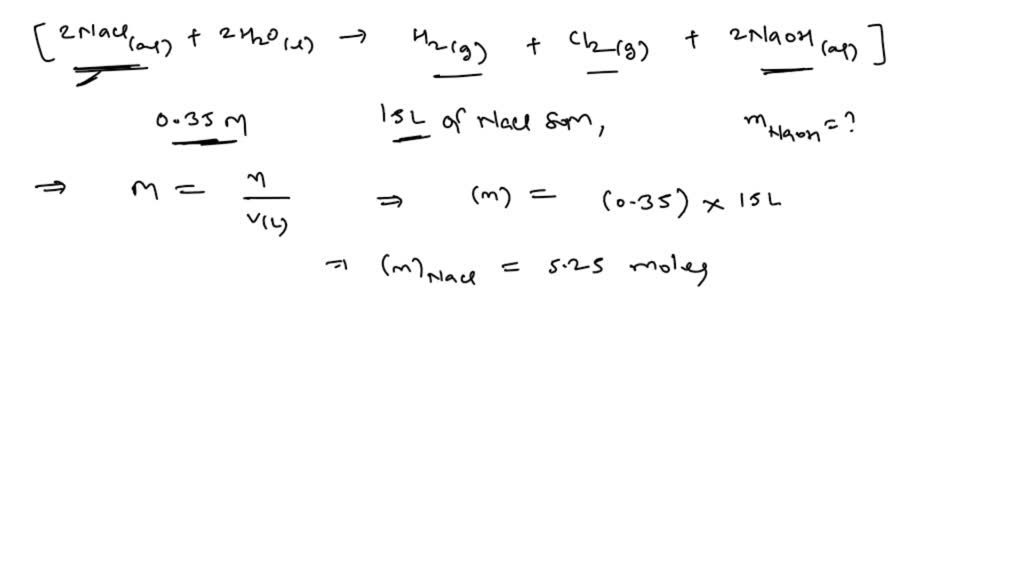 [2NaCl(aq) + 2H2O(l) → H2(g) + Cl2(g) + 2NaOH(aq)]
0.35 M 15L of NaCl Soln, mNaOH = ?
⇒ M = n/V(L) ⇒ (n) = (0.35) × 15L
⇒ (n)NaCl = 5.25 moles